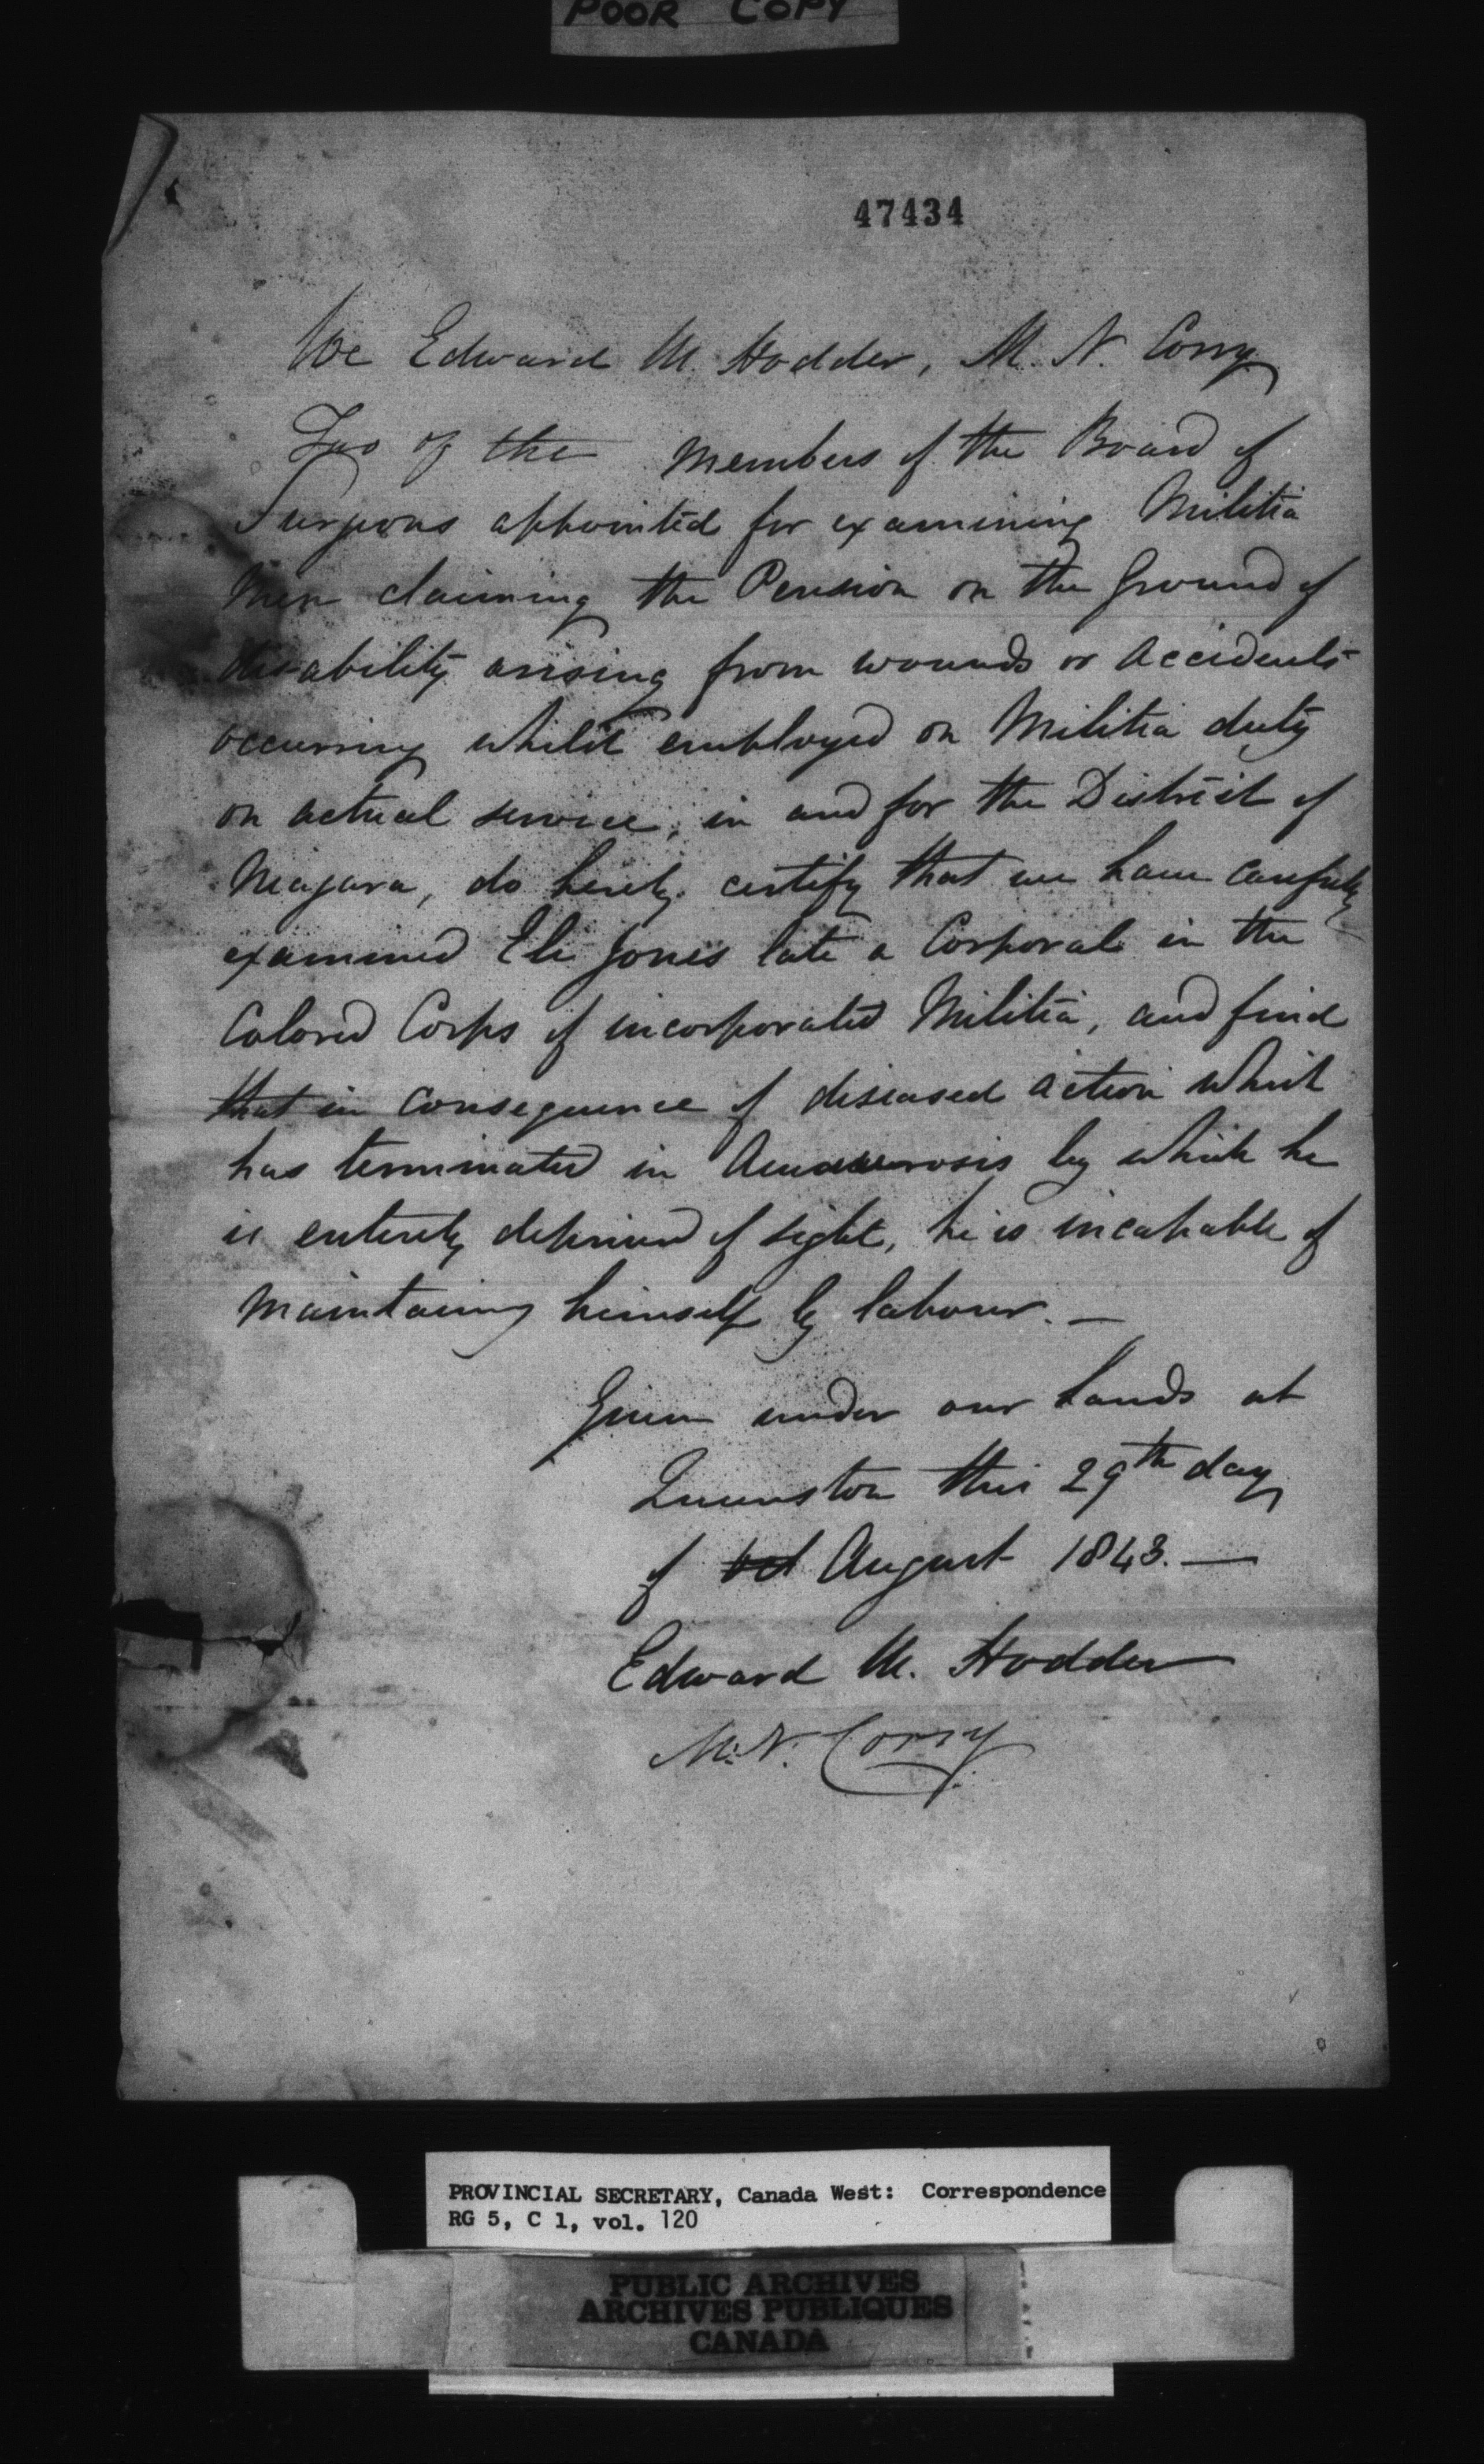 POOR COPY
47434
We Edward M. Hodder, M. N. Corry
Two of the members of the Board of
Surgeons appointed for examining Militia
Men claiming the Pension on the Ground of
disability arising from wounds or Accidents
occurring whilst employed on Militia duty
on actual service, in and for the District of
Niagara, do hereby certify that we have carefully
examined Eli Jones late a Corporal in the
Colored Corps of incorporated Militia, and find
that in consequence of diseased action which
has terminated in Amaurosis by which he
is entirely deprived of sight, he is incapable of
Maintaining himself by labour. —
Given under our hands at
Queenston this 29th day
of August 1843. —
Edward M. Hodder
M. N. Corry
PROVINCIAL SECRETARY, Canada West: Correspondence
RG 5, C 1, vol. 120
PUBLIC ARCHIVES
ARCHIVES PUBLIQUES
CANADA